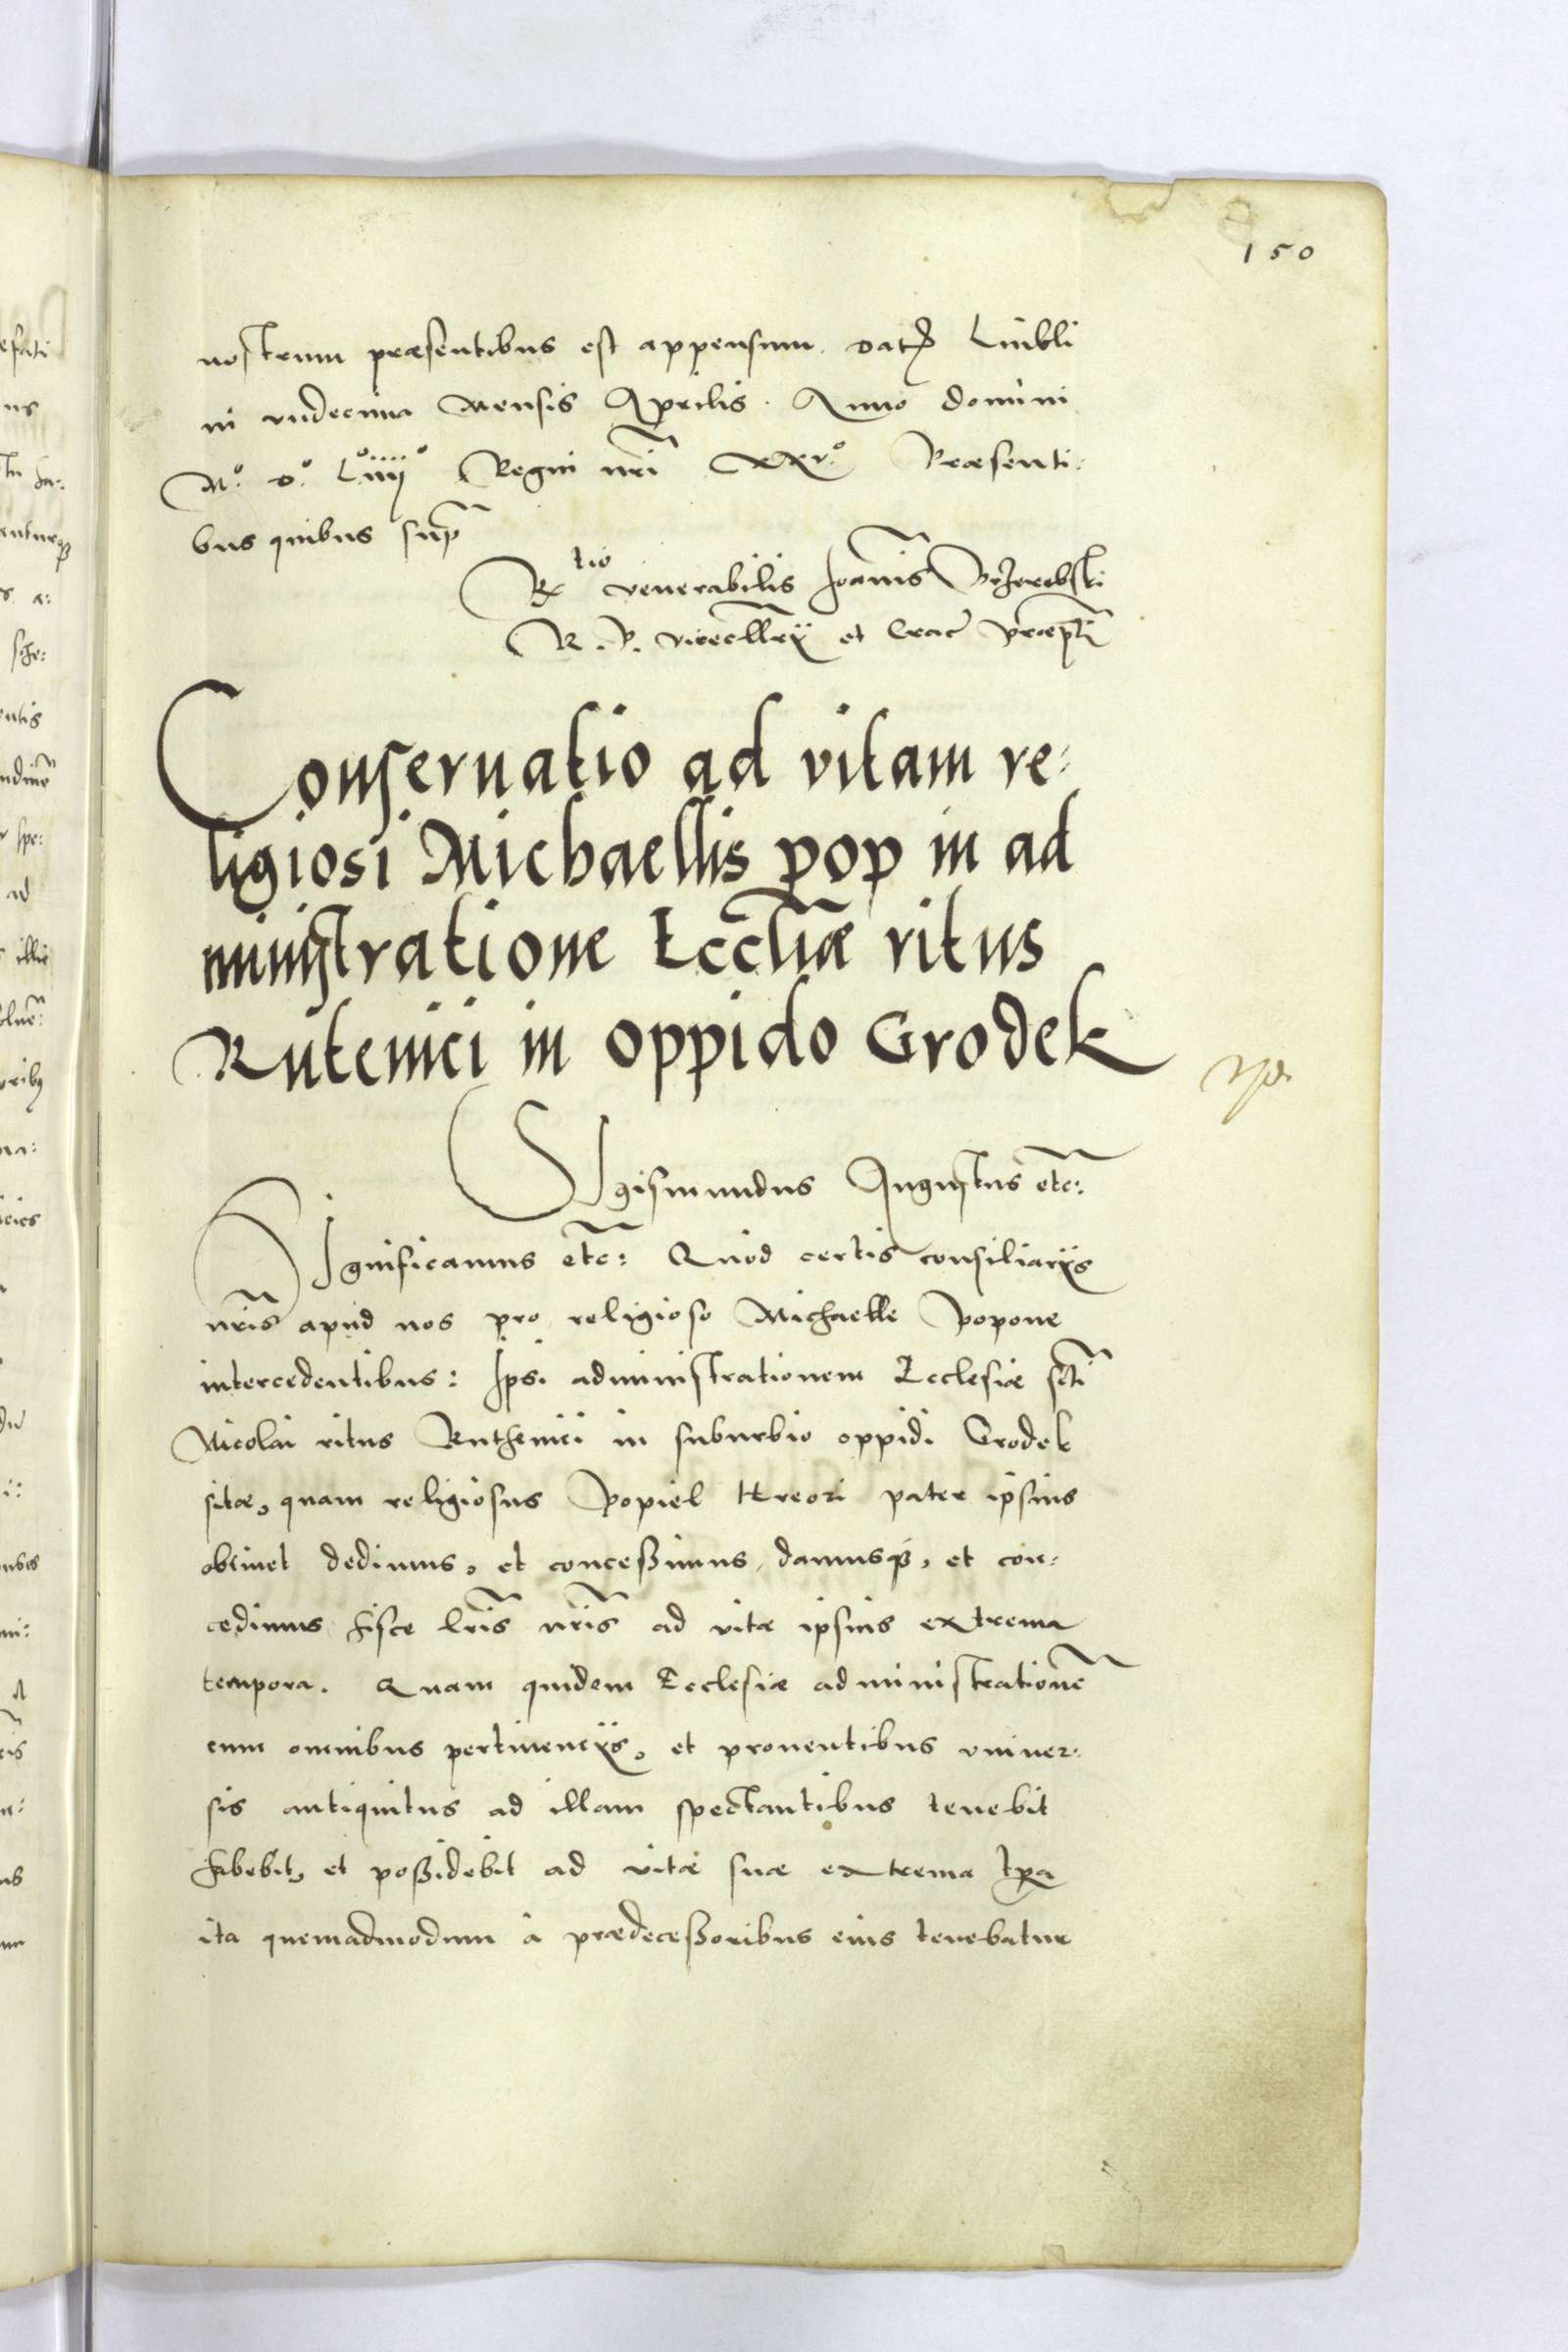 150
nostrum præsentibus est appensum. Dat̃ Lublí
ni vndecima Mensis Aprilis. Anno domini
Mº. Dº. Lº.iiijº Regni nr̃i xxvº. Præsenti:
bus quibus supr̃
Rtio venerabilis Joannis Przerebski
R. P. vicecllrij et Crac̃ Præpti
Conseruatio ad vitam re:
ligiosi Michaellis pop in ad
ministratione Eccliæ ritus
Rutenici in oppido Grodek
SIgismundus Augustus etc:
SIgnificamus etc: Quod certis consiliarijs
nr̃is apud nos pro religioso Michaelle Popone
intercedentibus: Ipsi administrationem Ecclesiæ scti
Nicolai ritus Ruthenici in suburbio oppidi Grodek
sitæ, quam religiosus Popiel Hreori pater ipsius
obtinet dedimus, et conceßimus, damusq3, et con:
cedimus hisce lr̃is nr̃is ad vitæ ipsius extrema
tempora. Quam quidem Ecclesiæ administratione̅
cum omnibus pertinencijs, et prouentibus vniuer:
sis antiquitus ad illam spectantibus tenebit
habebit, et poßidebit ad vitæ suæ extrema tpa
ita quemadmodum à prædeceßoribus eius tenebatur